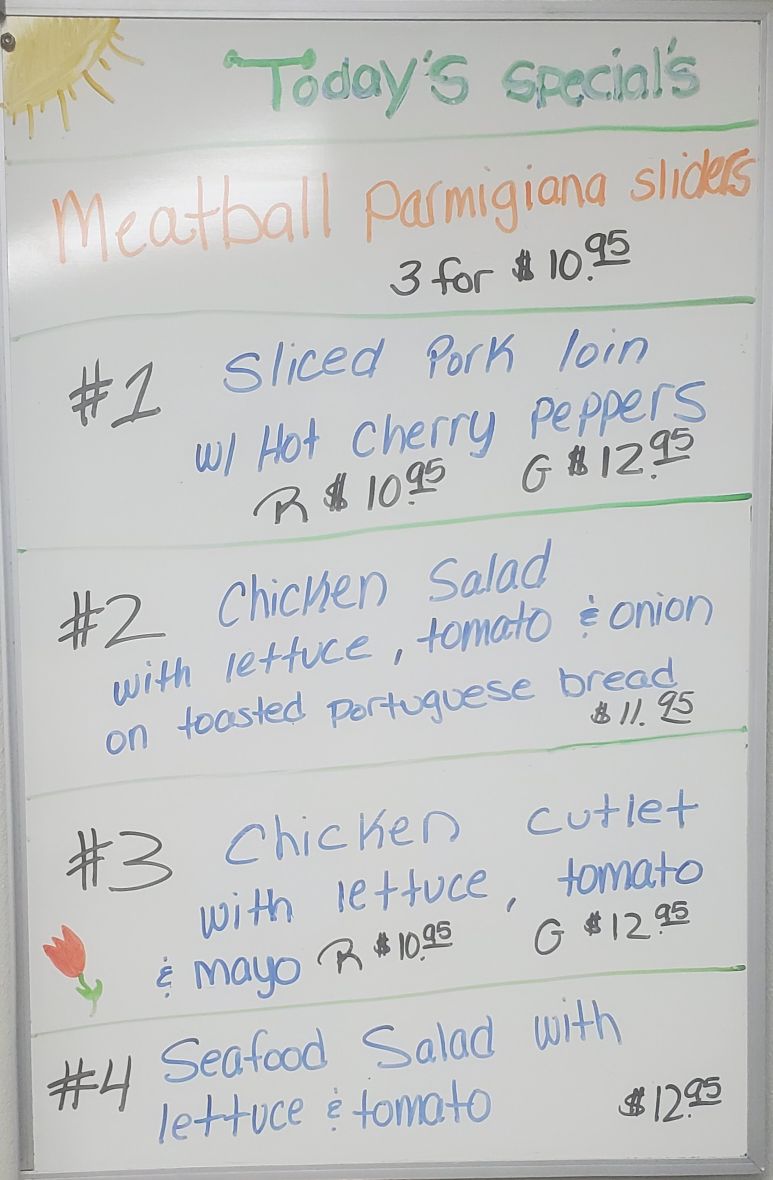 Today's Special's
Meatball Parmigiana sliders
3 for $10.95
#1 Sliced Pork loin
w/ Hot Cherry Peppers
R $10.95 G $12.95
#2 Chicken Salad
with lettuce, tomato & onion
on toasted Portuguese bread
$11.95
#3 Chicken cutlet
with lettuce, tomato
& mayo R $10.95 G $12.95
#4 Seafood Salad with
lettuce & tomato $12.95